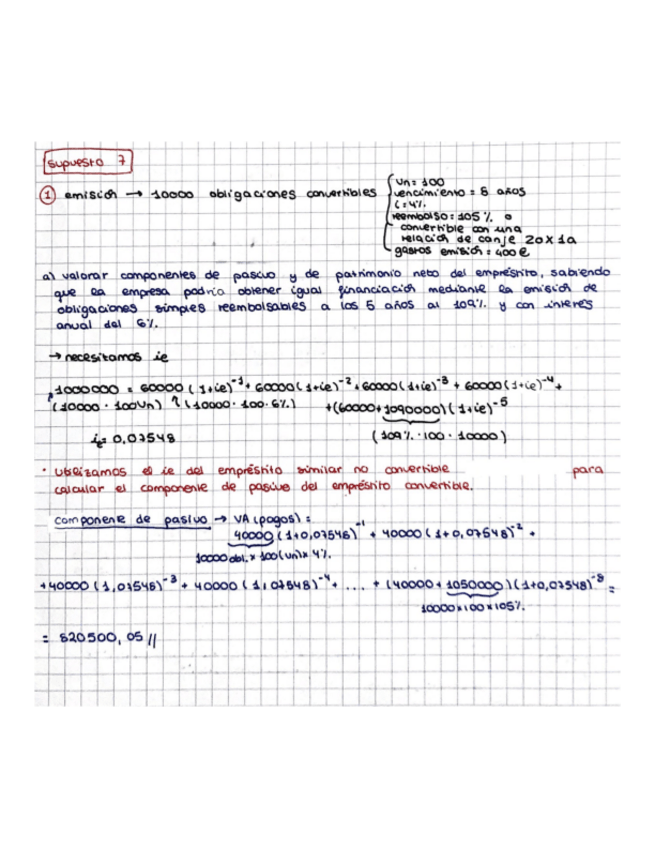 Supuesto 7
① emisión → 10000 obligaciones convertibles
Vn = 100
vencimiento = 8 años
i = 4%
reembolso = 105% o
convertible con una
relación de canje 20 x 1a
gastos emisión = 400€
a) valorar componentes de pasivo y de patrimonio neto del empréstito, sabiendo
que la empresa podría obtener igual financiación mediante la emisión de
obligaciones simples reembolsables a los 5 años al 109% y con interés
anual del 6%.
→ necesitamos ie
1000000 = 60000 (1+ie)⁻¹ + 60000 (1+ie)⁻² + 60000 (1+ie)⁻³ + 60000 (1+ie)⁻⁴ +
(10000 · 100Vn) (10000 · 100 · 6%) +(60000 + 1090000) (1+ie)⁻⁵
ie = 0,07548 (109% · 100 · 10000)
· Utilizamos el ie del empréstito similar no convertible para
calcular el componente de pasivo del empréstito convertible.
componene de pasivo → VA (pagos) =
40000 (1+0,07548)⁻¹ + 40000 (1+0,07548)⁻² +
10000 obl. x 100 (Vn) x 4%
+40000 (1,07548)⁻³ + 40000 (1,07548)⁻⁴ + ... + (40000 + 1050000) (1+0,07548)⁻⁸ =
10000x100x105%
= 820500,05 //